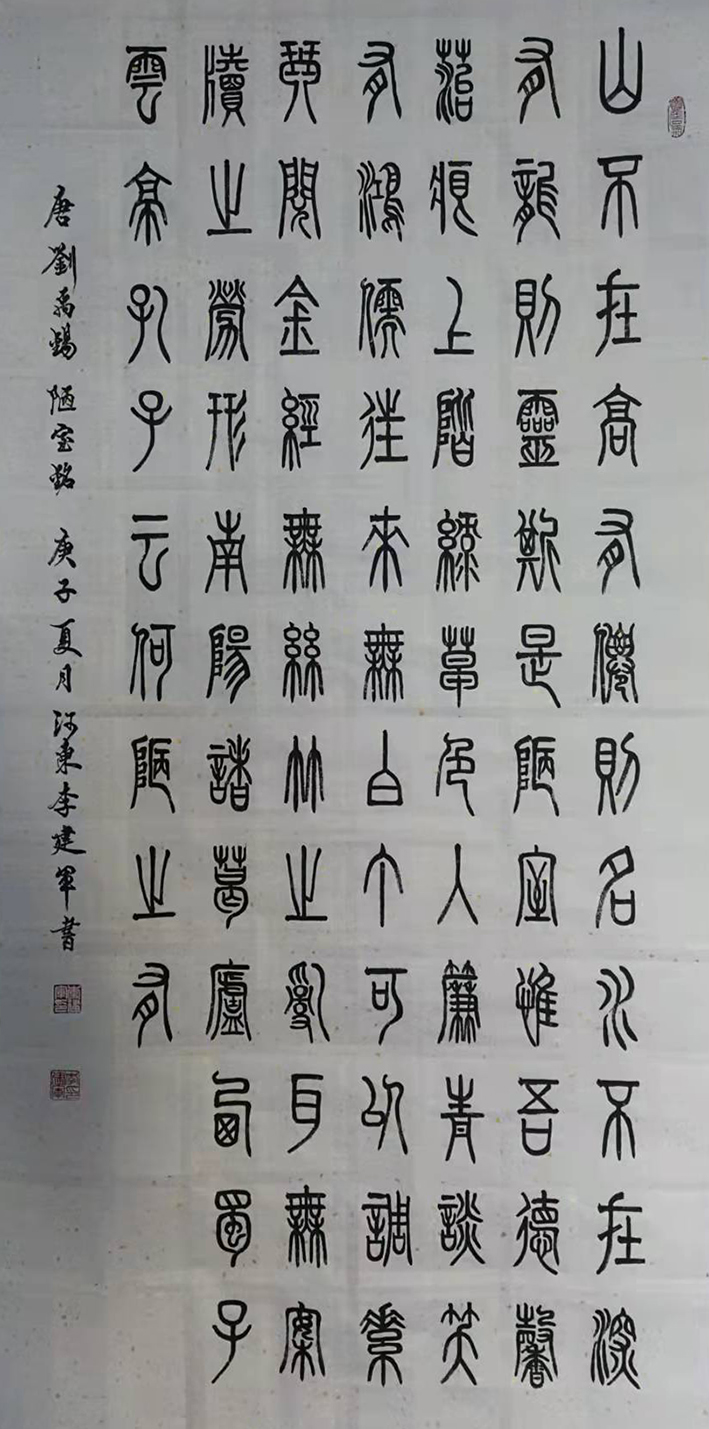 山不在高有僊則名水不在深
有龍則靈斯是陋室惟吾德馨
菭痕上階綠草色入簾青談笑
有鴻儒往來無白丁可以調素
琴閱金經無絲竹之亂耳無案
牘之勞形南陽諸葛廬西蜀子
雲亭孔子云何陋之有
唐劉禹錫陋室銘 庚子夏月河東李建軍書